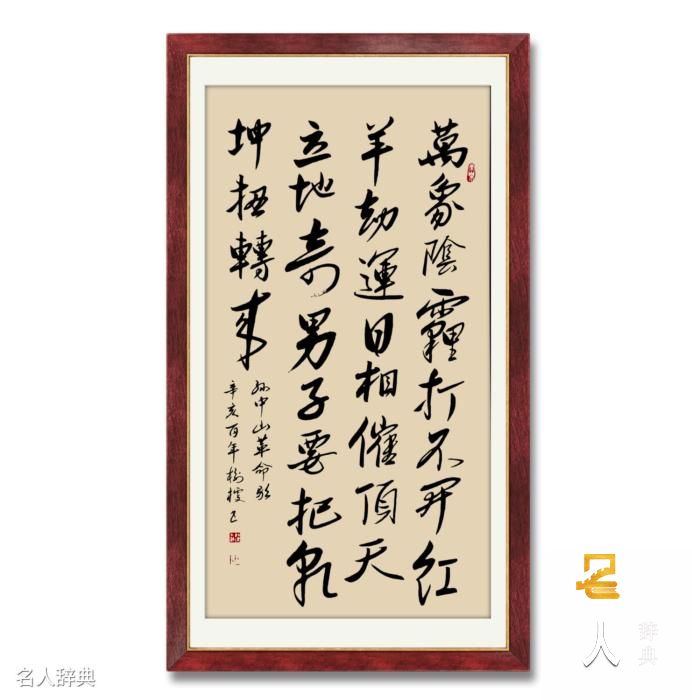 萬象陰霾打不開紅
羊劫運日相催頂天
立地奇男子要把乾
坤扭轉來
孫中山革命歌
辛亥百年樹
名人辞典
名人
辞典